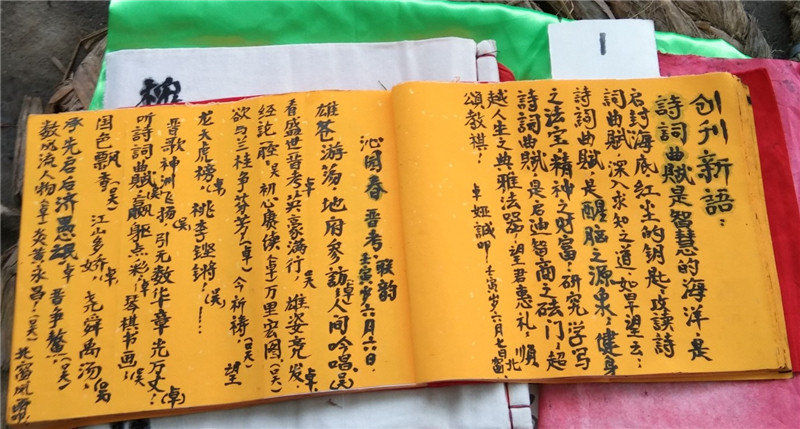 创刊新語：
詩词曲赋是智慧的海洋，是
启封海底红尘的钥匙，攻读詩
词曲赋，深入求知之道，如旱望云；
詩词曲赋，是醒脑之源泉，健身
之法宝，精神之财富，研究学写
詩词曲赋，是启迪智商之砝门，超
越人生之典雅法器，望君惠礼
頌教棋！
卓娅誠叩，壬寅岁六月七日
沁园春 晋考，联韵
壬寅岁六月六日，
雄苍游荡，地府参訪，(卓)人间吟唱，(吴)
看盛世晋考，英豪满行，雄姿亮发，(卓)
经论一腔，(吴)初心赓续，(卓)万里宏图，(吴)
欲与三桂争芬芳，(卓)今祈祷，望
龙天虎榜，(卓)桃李铿锵，(吴)
晋歌神洲飞扬，引无数华章光万丈，(卓)
听詩词曲赋，赢躯点彩，(卓)琴棋书画，(吴)
国色飘香，(吴)江山多娇，(卓)尧舜禹汤，(吴)
承先启后济愚氓，(卓)晋争鳌，(吴)
数风流人物，(卓)炎黄永昌，(吴)
1